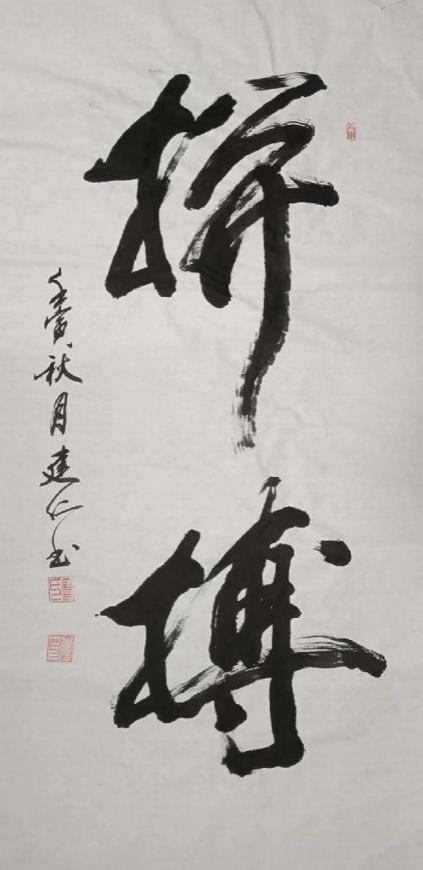 拼搏
壬寅秋月建仁书